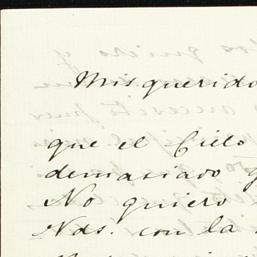 Mis querido
que el Cielo
demasiado
No quiero
Vds. con la